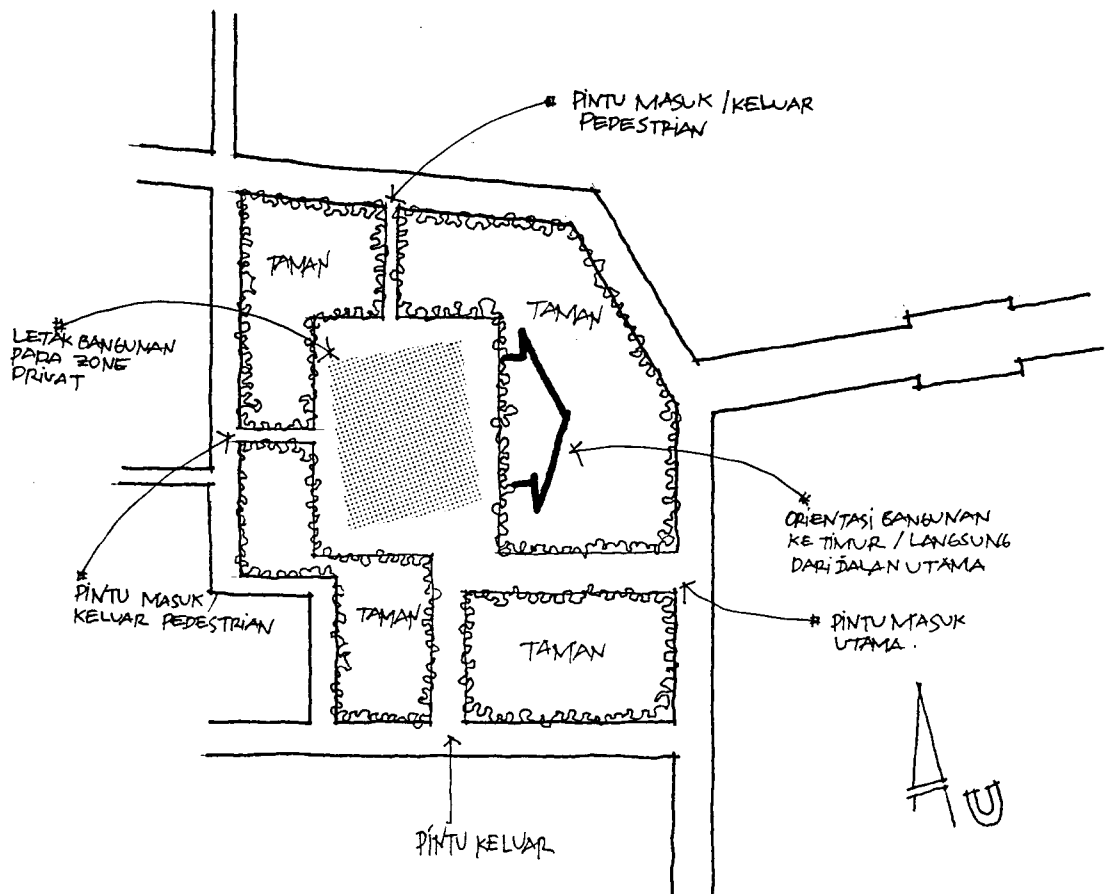 * PINTU MASUK / KELUAR
PEDESTRIAN
TAMAN
TAMAN
*
LETAK BANGUNAN
PADA ZONE
PRIVAT
*
ORIENTASI BANGUNAN
KE TIMUR / LANGSUNG
DARI JALAN UTAMA
*
PINTU MASUK /
KELUAR PEDESTRIAN
TAMAN
TAMAN
* PINTU MASUK
UTAMA.
PINTU KELUAR
U